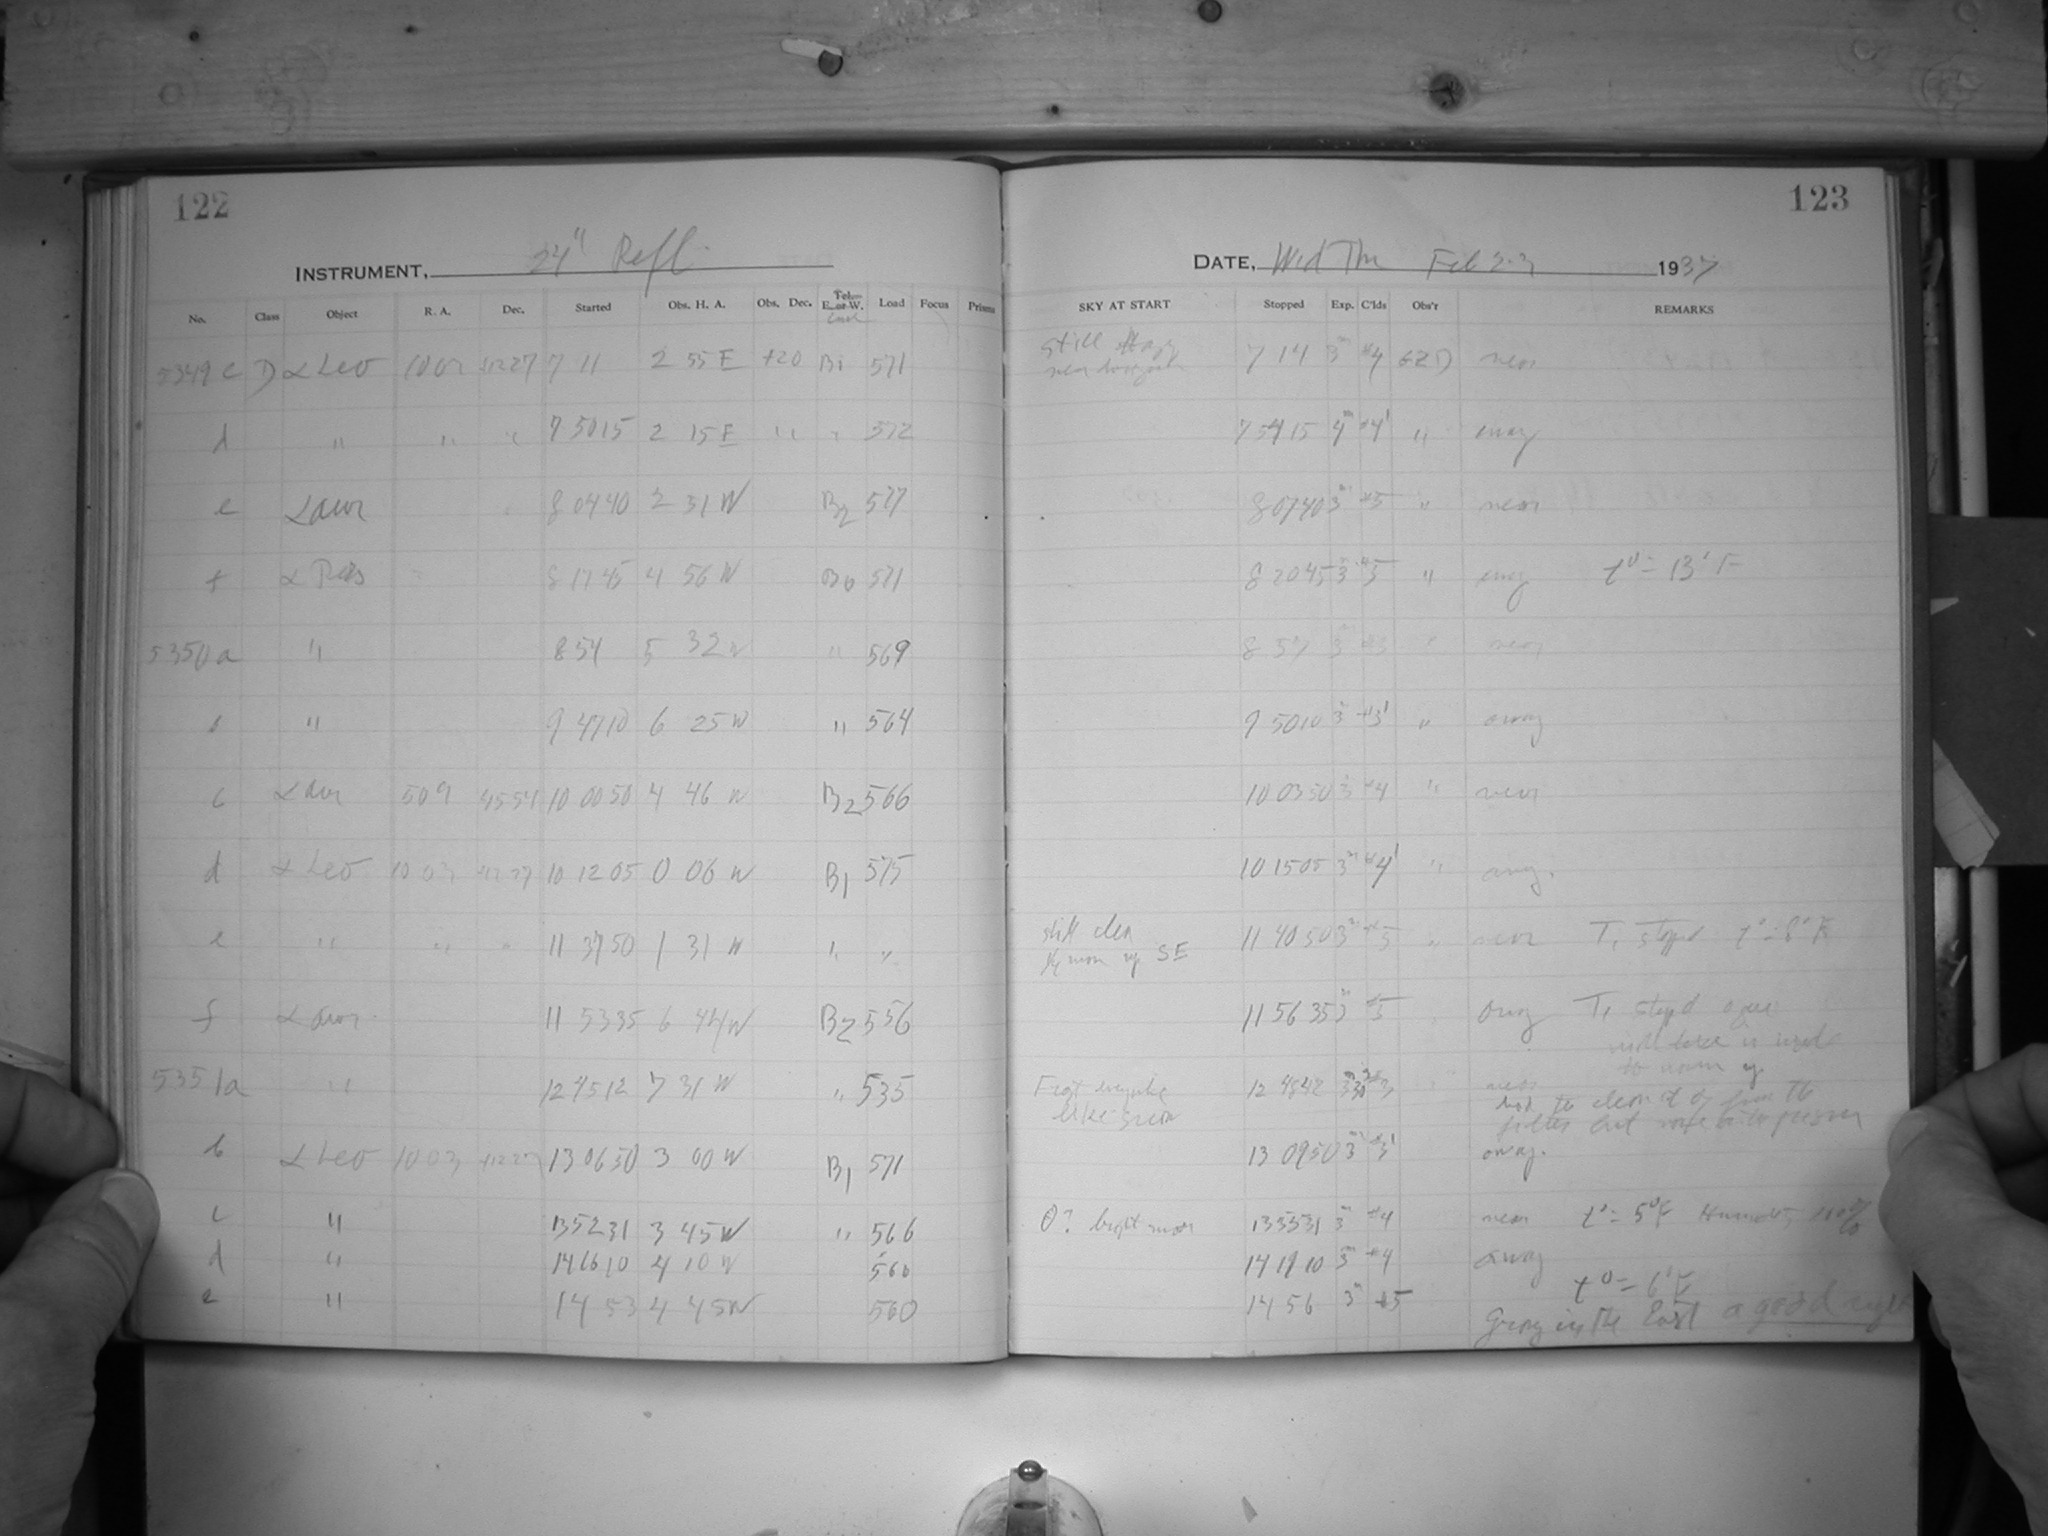 122
INSTRUMENT, 24" Refl.
No. Class Object R. A. Dec. Started Obs. H. A. Obs. Dec. Tel. E. or W. Load Focus Prisms
5349 c D α Leo 10 03 +12 27 7 11 2 55 E +20 B1 571
d " " " 7 50 15 2 15 E " " 572
e α aur 8 04 40 2 31 W B2 577
f α Pers 8 17 45 4 56 W B0 571
5350 a " 8 54 5 32 W " 569
b " 9 47 10 6 25 W " 564
c α aur 5 09 45 54 10 00 50 4 46 W B2 566
d α Leo 10 03 +12 27 10 12 05 0 06 W B1 575
e " " " 11 37 50 1 31 W " "
f α aur 11 53 35 6 44 W B2 556
5351a " 12 45 12 7 31 W " 535
b α Leo 10 03 +12 27 13 06 50 3 00 W B1 571
c " 13 52 31 3 45 W " 566
d " 14 16 10 4 10 W 560
e " 14 53 4 45 W 560
123
DATE, Wed Thu Feb 3 1937
SKY AT START Stopped Exp. C'lds Obs'r REMARKS
still 7 14 3m #4 near
7 54 15 4m #4' " away
8 07 40 3m #5 " near
8 20 45 3m #5 " away t° = 13° F
8 57 3m " near
9 50 10 3m #3' " away
10 03 50 3m #4 " near
10 15 05 3m #4' " away.
still clear
moon up SE 11 40 50 3m #5 " near T, stopped t° = 8° F
11 56 35 3m #5 away T, stopd again
to warm up
Frost
like snow 12 48 42 near
had to clean it off from the
filter but
13 09 50 3m #3' away.
0? bright moon 13 55 31 3m #4 near t° = 5°F Humidity 100%
14 19 10 3m #4 away
t° = 6°F
14 56 3m #5
Gray in the East a good night